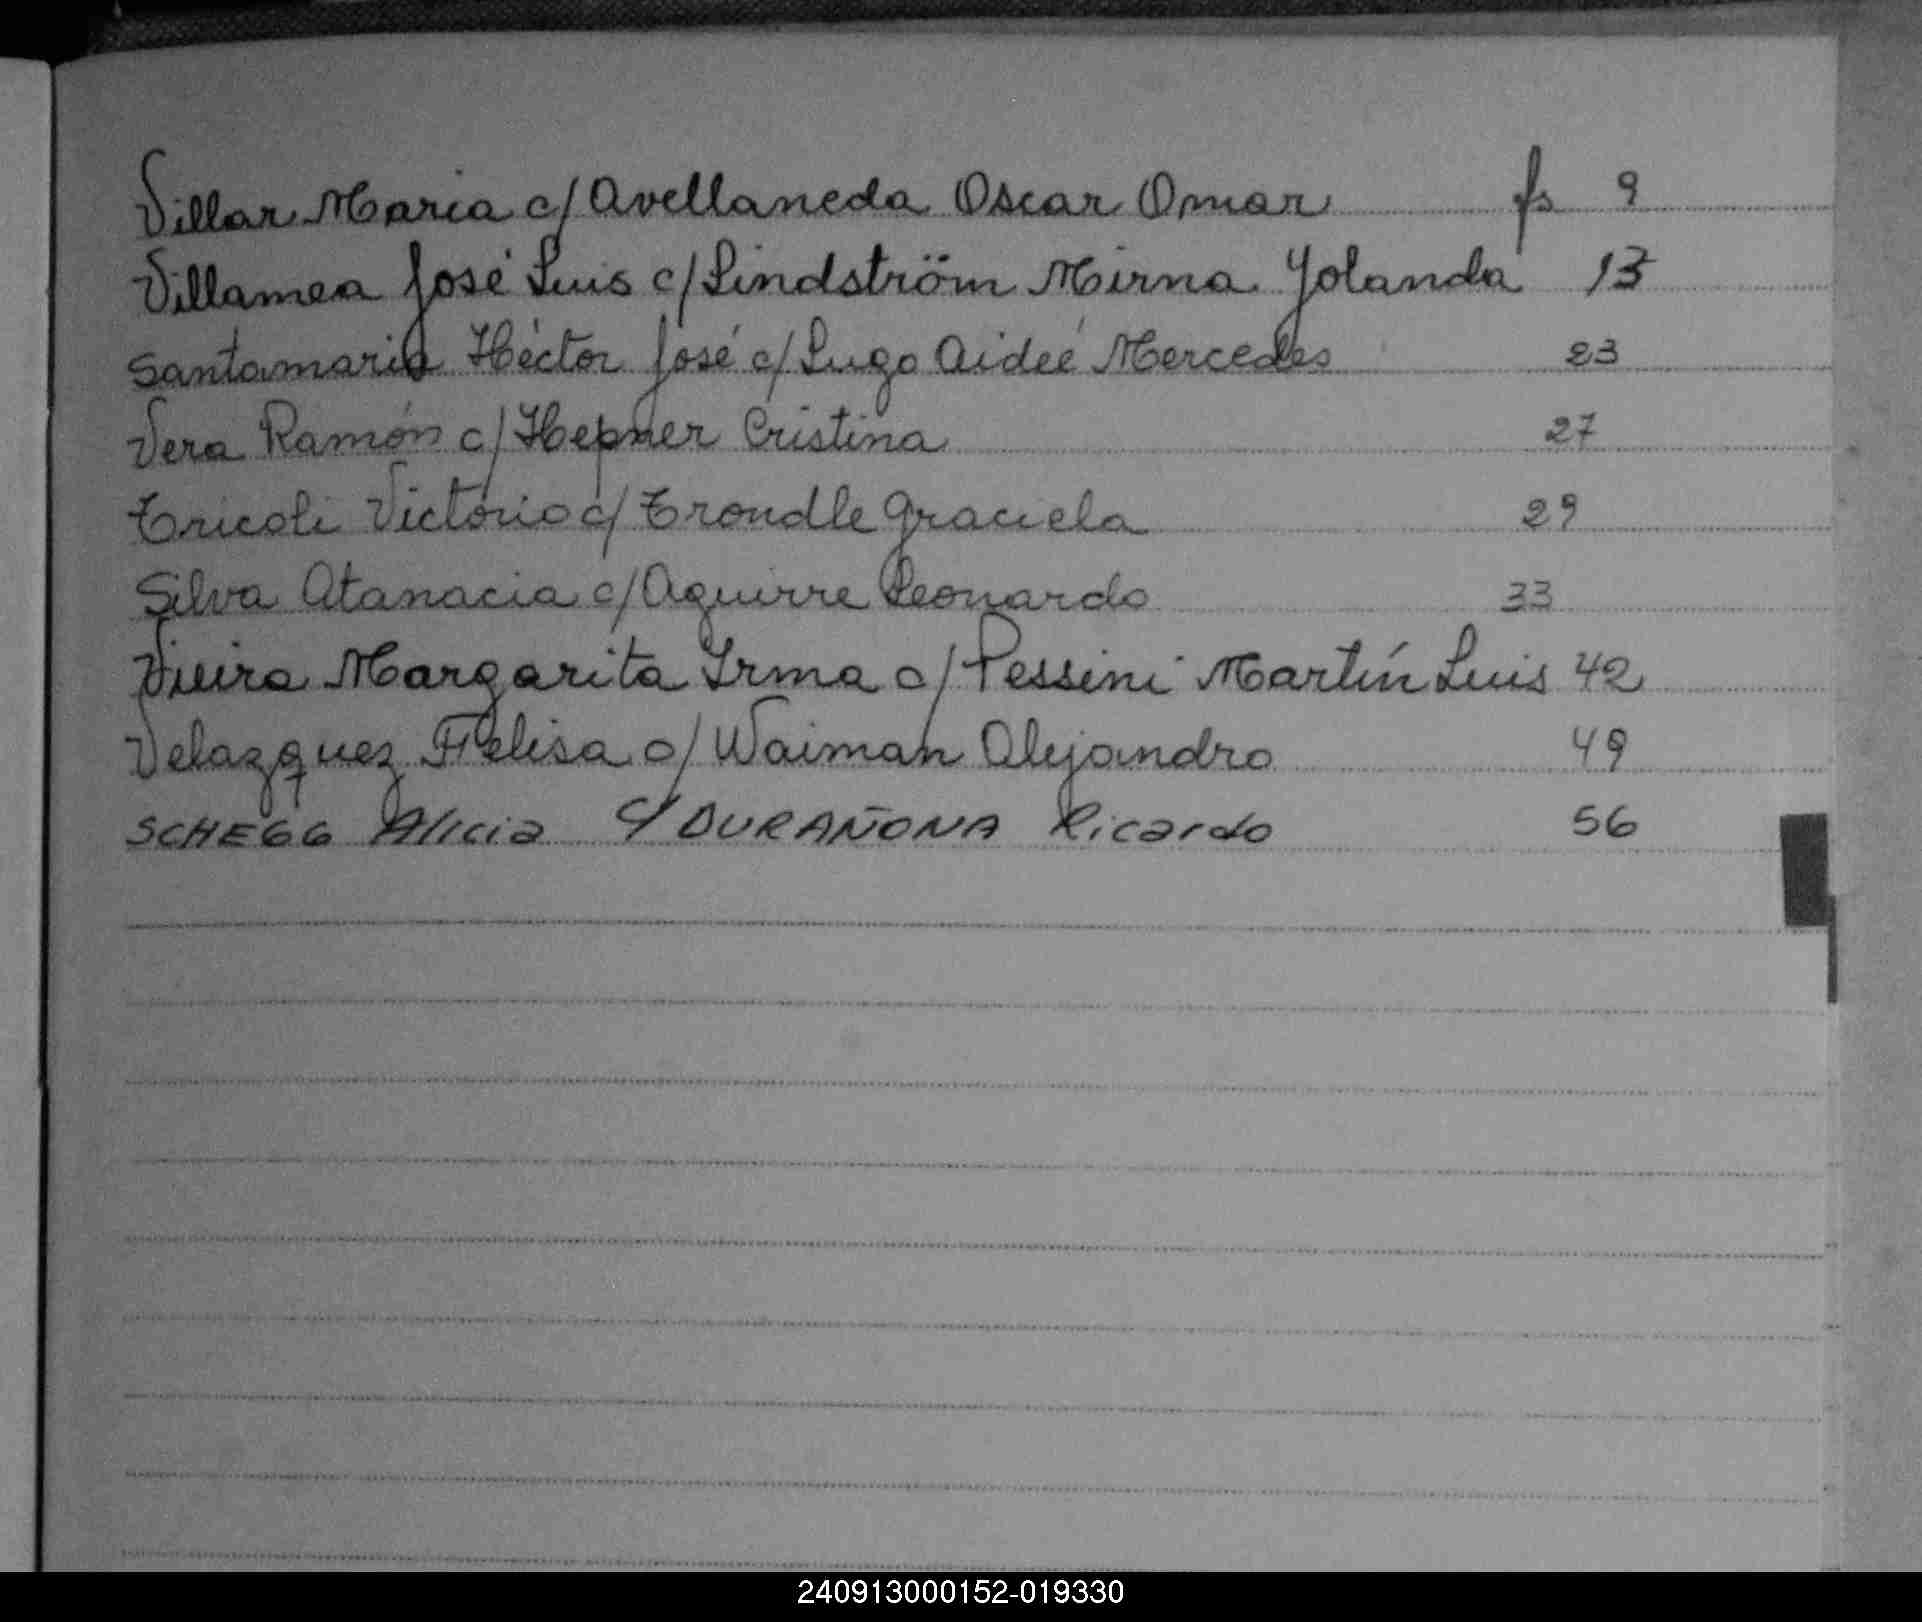 Villar Maria c/ Avellaneda Oscar Omar fs 9
Villamea José Luis c/ Lindström Mirna Yolanda 13
Santamaria Héctor José c/ Lugo Aideé Mercedes 23
Vera Ramón c/ Hepner Cristina 27
Tricoli Victorio c/ Trondle Graciela 29
Silva Atanacia c/ Aguirre Leonardo 33
Vieira Margarita Irma c/ Pessini Martín Luis 42
Velazquez Felisa c/ Waiman Alejandro 49
SCHEGG Alicia c/ DURAÑONA Ricardo 56
240913000152-019330